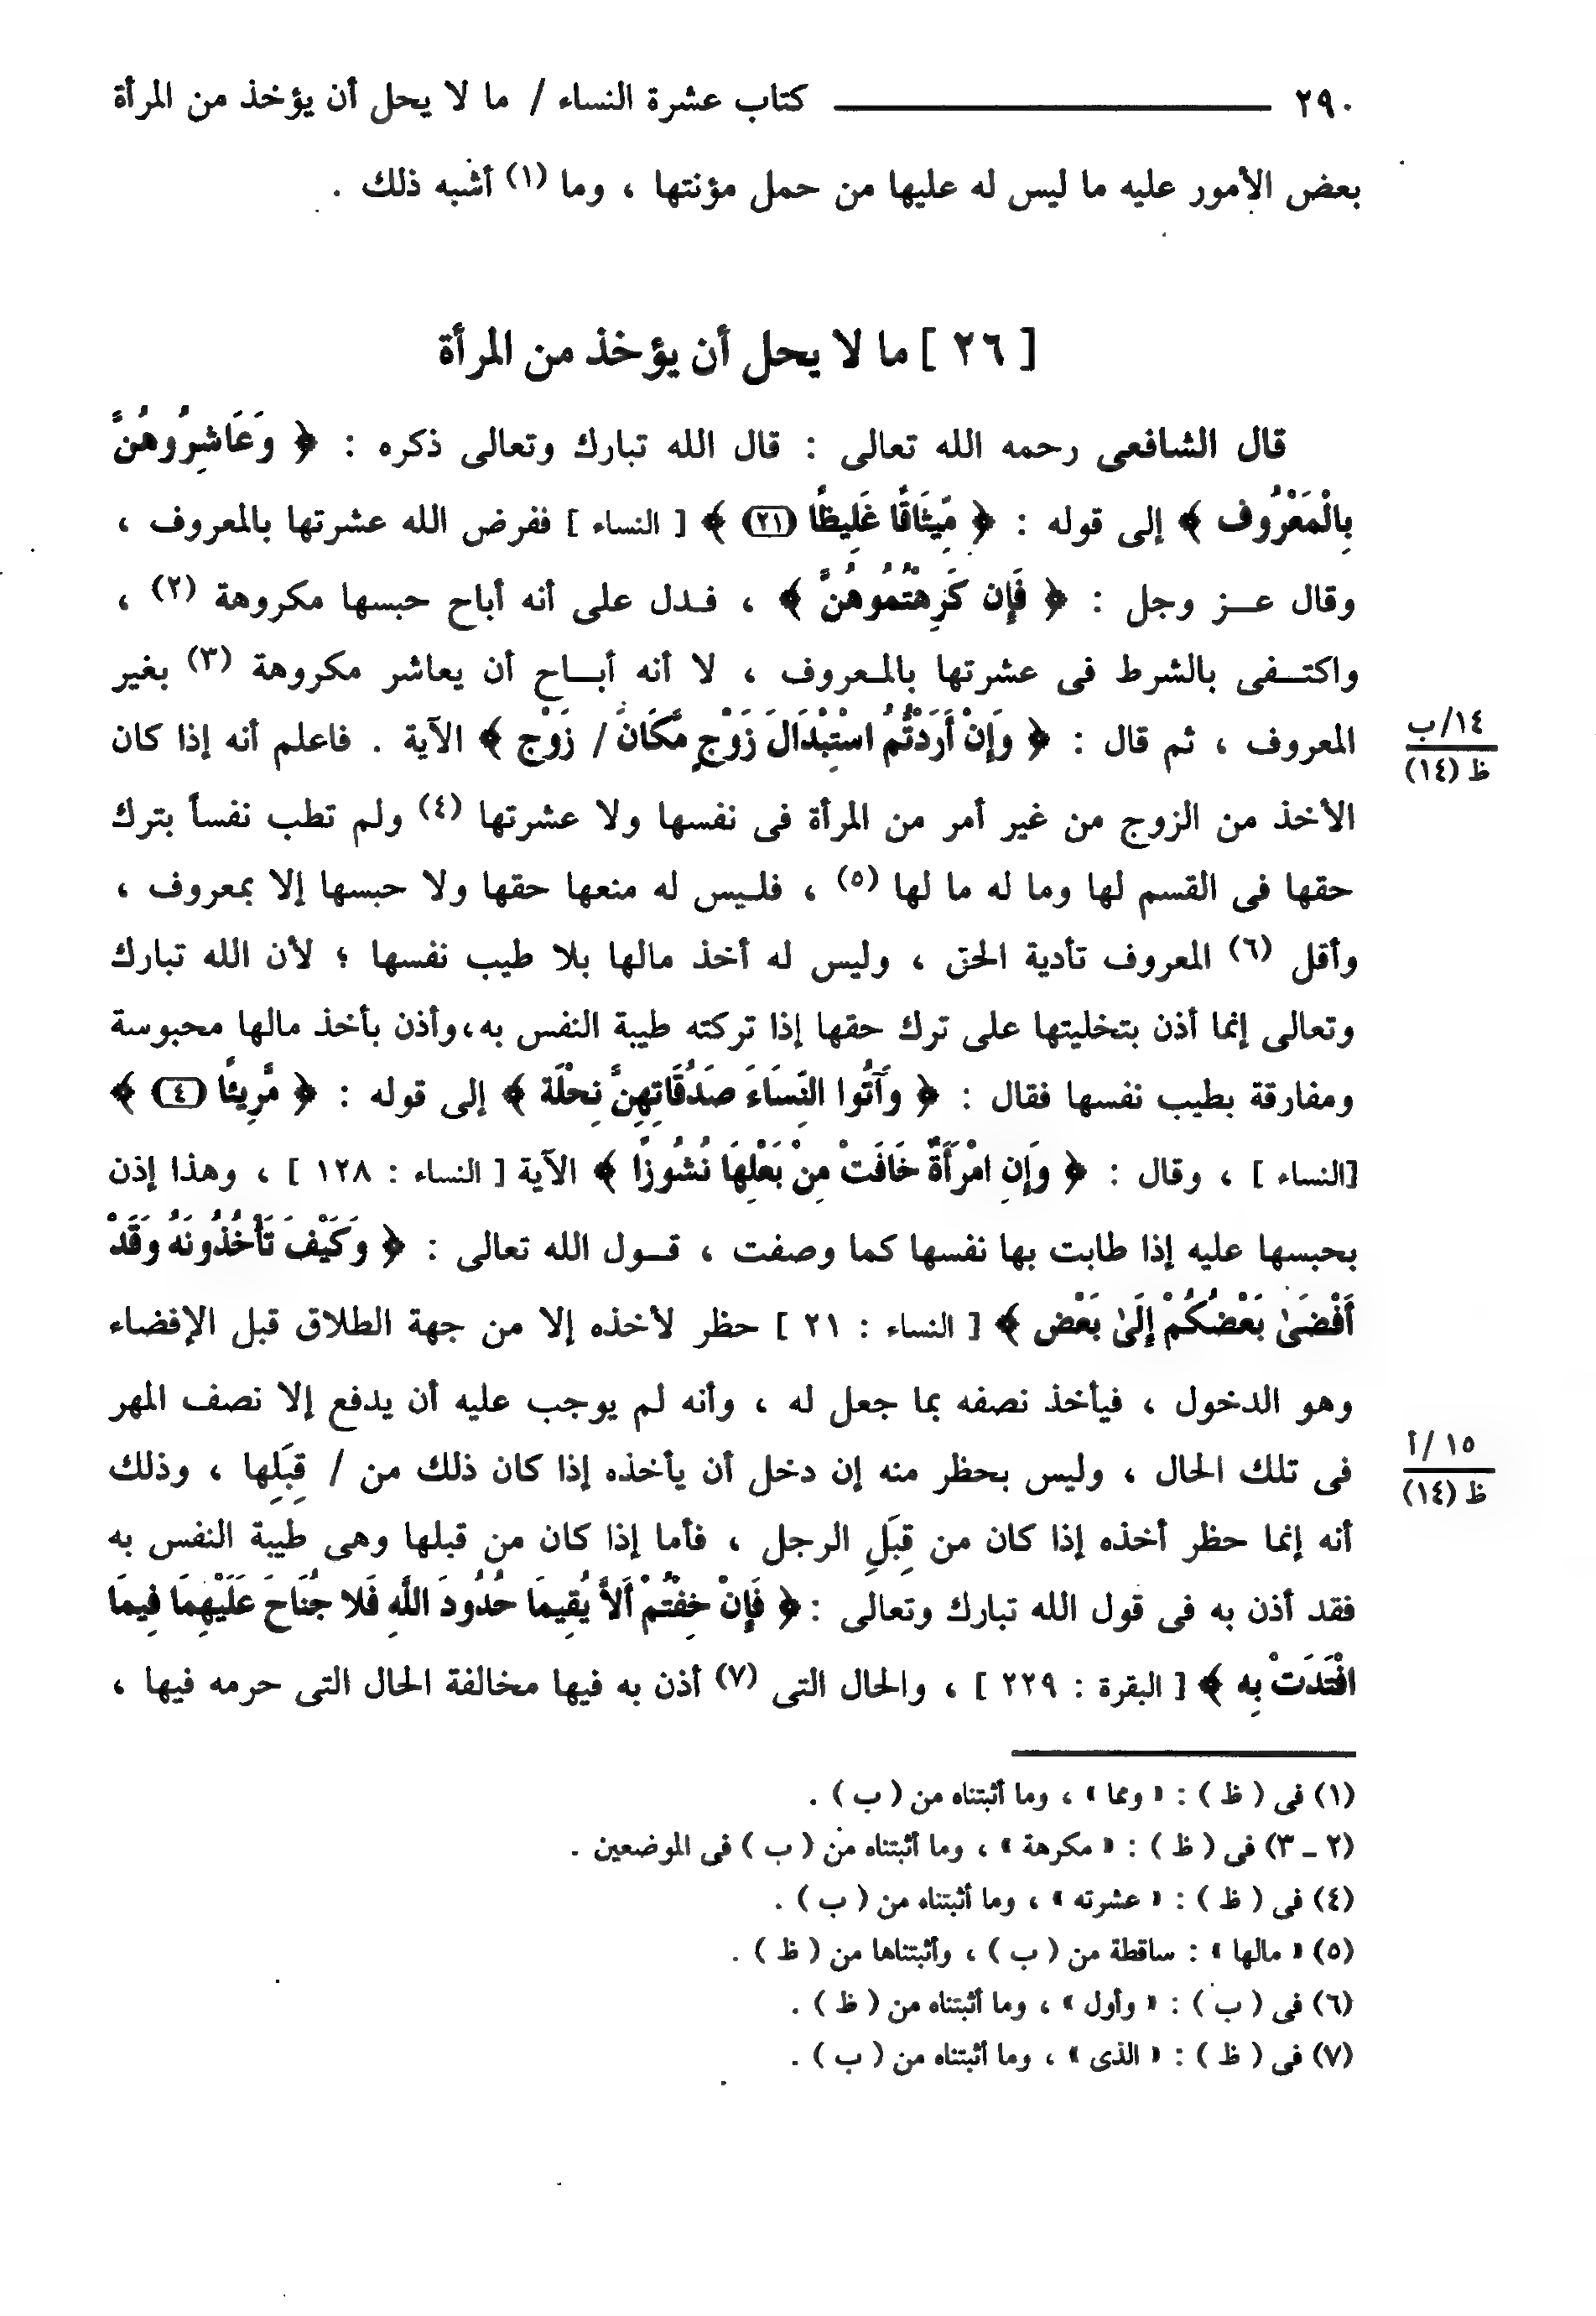 ٢٩٠ كتاب عشرة النساء / ما لا يحل أن يؤخذ من المرأة
بعض الأمور عليه ما ليس له عليها من حمل مؤنتها ، وما (١) أشبه ذلك .
[ ٢٦ ] ما لا يحل أن يؤخذ من المرأة
قال الشافعى رحمه الله تعالى : قال الله تبارك وتعالى ذكره : ﴿ وَعَاشِرُوهُنَّ
بِالْمَعْرُوف ﴾ إلى قوله : ﴿ مِّيثَاقًا غَلِيظًا (٢١) ﴾ [ النساء ] ففرض الله عشرتها بالمعروف ،
وقال عــز وجل : ﴿ فَإِن كَرِهْتُمُوهُنَّ ﴾ ، فـدل على أنه أباح حبسها مكروهة (٢) ،
واكتــفى بالشرط فى عشرتها بالمـعروف ، لا أنه أبــاح أن يعاشر مكروهة (٣) بغير
المعروف ، ثم قال : ﴿ وَإِنْ أَرَدْتُّمُ اسْتِبْدَالَ زَوْجٍ مَّكَانَ / زَوْج ﴾ الآية . فاعلم أنه إذا كان
١٤/ب
ظ (١٤)
الأخذ من الزوج من غير أمر من المرأة فى نفسها ولا عشرتها (٤) ولم تطب نفساً بترك
حقها فى القسم لها وما له ما لها (٥) ، فلـيس له منعها حقها ولا حبسها إلا بمعروف ،
وأقل (٦) المعروف تأدية الحق ، وليس له أخذ مالها بلا طيب نفسها ؛ لأن الله تبارك
وتعالى إنما أذن بتخليتها على ترك حقها إذا تركته طيبة النفس به،وأذن بأخذ مالها محبوسة
ومفارقة بطيب نفسها فقال : ﴿ وَآتُوا النِّسَاءَ صَدُقَاتِهِنَّ نِحْلَة ﴾ إلى قوله : ﴿ مَّرِيئًا (٤) ﴾
[النساء ] ، وقال : ﴿ وَإِنِ امْرَأَةٌ خَافَتْ مِنْ بَعْلِهَا نُشُوزًا ﴾ الآية [ النساء : ١٢٨ ] ، وهذا إذن
بحبسها عليه إذا طابت بها نفسها كما وصفت ، قــول الله تعالى : ﴿ وَكَيْفَ تَأْخُذُونَهُ وَقَدْ
أَفْضَىٰ بَعْضُكُمْ إِلَىٰ بَعْض ﴾ [ النساء : ٢١ ] حظر لأخذه إلا من جهة الطلاق قبل الإفضاء
وهو الدخول ، فيأخذ نصفه بما جعل له ، وأنه لم يوجب عليه أن يدفع إلا نصف المهر
فى تلك الحال ، وليس بحظر منه إن دخل أن يأخذه إذا كان ذلك من / قِبَلِها ، وذلك
١٥ /أ
ظ (١٤)
أنه إنما حظر أخذه إذا كان من قِبَلِ الرجل ، فأما إذا كان من قبلها وهى طيبة النفس به
فقد أذن به فى قول الله تبارك وتعالى : ﴿ فَإِنْ خِفْتُمْ أَلاَّ يُقِيمَا حُدُودَ اللَّهِ فَلا جُنَاحَ عَلَيْهِمَا فِيمَا
افْتَدَتْ بِه ﴾ [ البقرة : ٢٢٩ ] ، والحال التى (٧) أذن به فيها مخالفة الحال التى حرمه فيها ،
(١) فى ( ظ ) : « ومما » ، وما أثبتناه من ( ب ) .
(٢ ـ ٣) فى ( ظ ) : « مكرهة » ، وما أثبتناه من ( ب ) فى الموضعين .
(٤) فى ( ظ ) : « عشرته » ، وما أثبتناه من ( ب ) .
(٥) « مالها » : ساقطة من ( ب ) ، وأثبتناها من ( ظ ) .
(٦) فى ( ب ) : « وأول » ، وما أثبتناه من ( ظ ) .
(٧) فى ( ظ ) : « الذى » ، وما أثبتناه من ( ب ) .